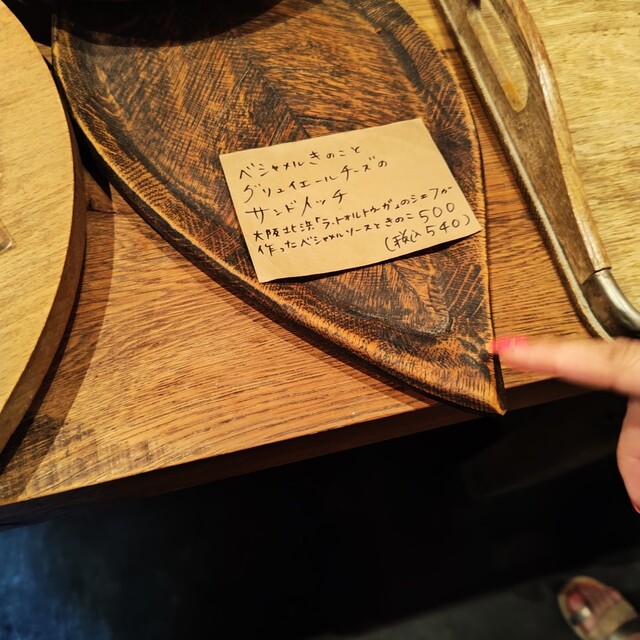 ベシャメルきのこと
グリュイエールチーズの
サンドイッチ
大阪北浜「ラ・トォルトゥーガ」のシェフが
作ったベシャメルソースときのこ 500
(税込540)